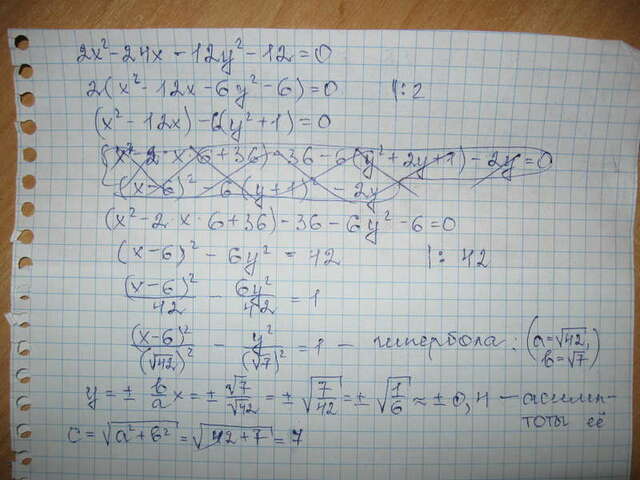 2x² - 24x - 12y² - 12 = 0
2(x² - 12x - 6y² - 6) = 0 |: 2
(x² - 12x) - 6(y² + 1) = 0
(x² - 2·x·6 + 36) - 36 - 6(y² + 2y + 1) - 2y = 0
(x - 6)² - 6(y + 1)² - 2y
(x² - 2·x·6 + 36) - 36 - 6y² - 6 = 0
(x - 6)² - 6y² = 42 |: 42
(x - 6)²/42 - 6y²/42 = 1
(x - 6)²/(√42)² - y²/(√7)² = 1 — гипербола: (a = √42, b = √7)
y = ± b/a x = ± √7/√42 = ± √(7/42) = ± √(1/6) ≈ ± 0,4 — асимптоты её
c = √(a² + b²) = √(42 + 7) = 7